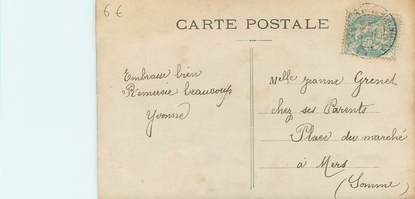 6 €
CARTE POSTALE
Embrasse bien
Remercie beaucoup
Yvonne
Melle Jeanne Grenet
chez ses Parents
Place du marché
à Mers
(Somme)